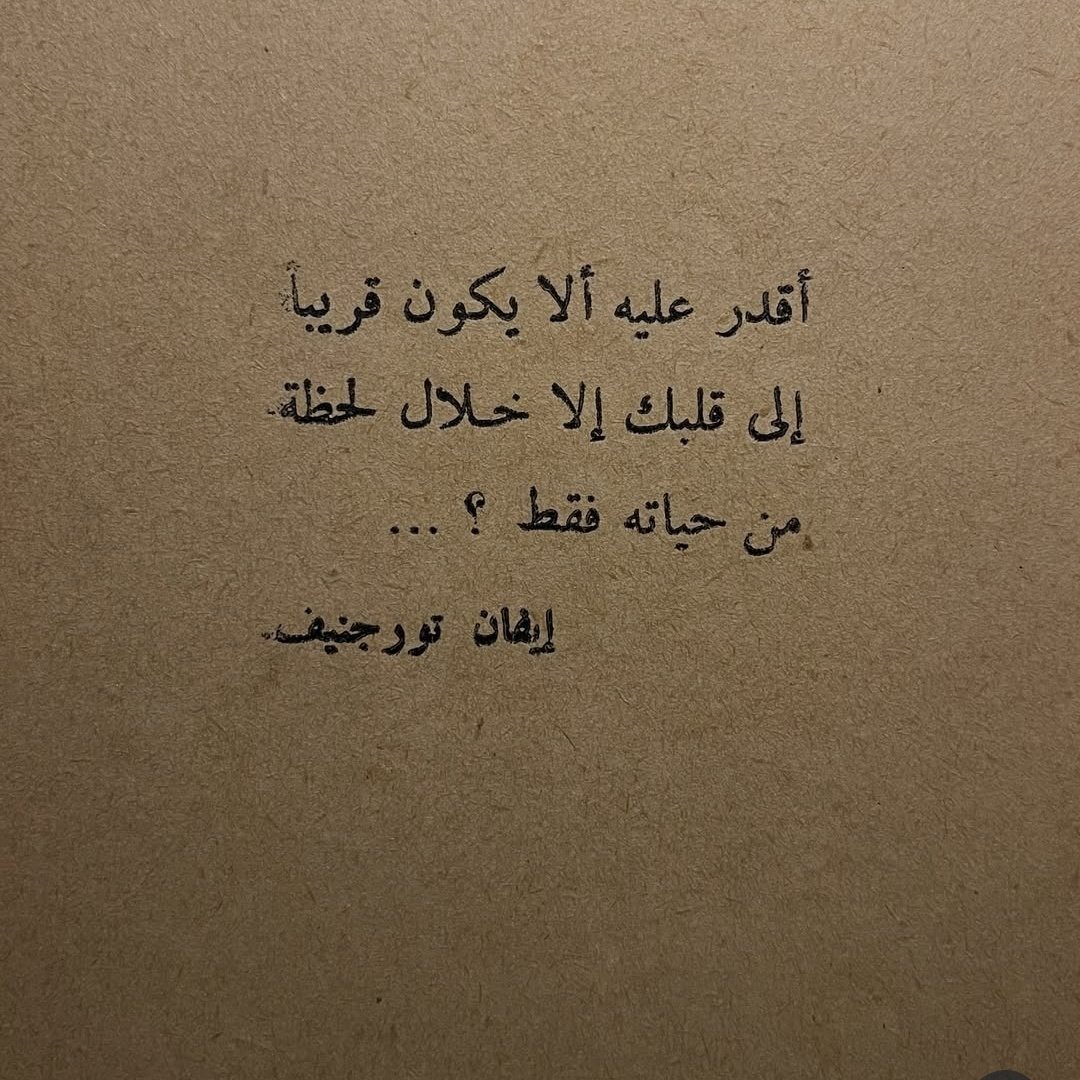 أقدر عليه ألا يكون قريباً
إلى قلبك إلا خلال لحظة
من حياته فقط ؟ ...
إيفان تورجنيف